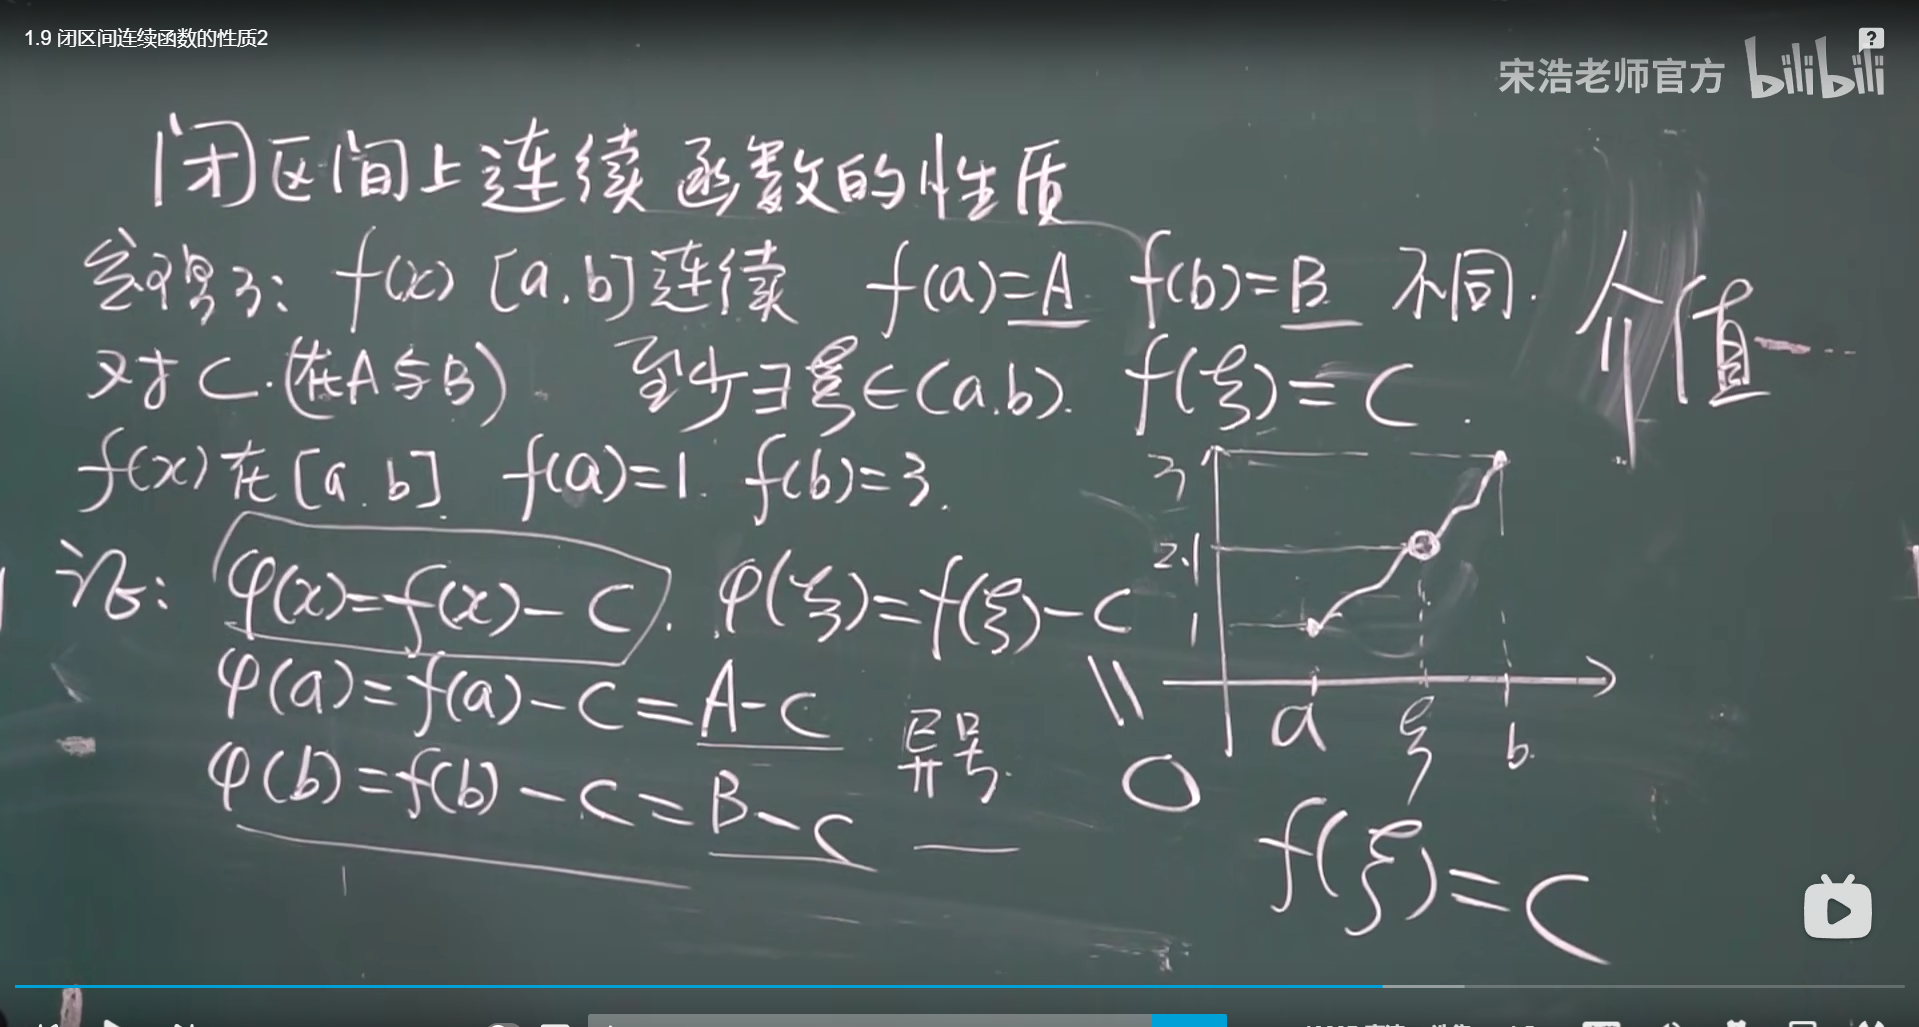 1.9 闭区间连续函数的性质2
宋浩老师官方 bilibili
闭区间上连续函数的性质
f(x) [a,b]连续 f(a)=A f(b)=B 不同.
介值
对C.(在A与B) 至少∃ξ∈(a,b). f(ξ)=C.
f(x)在[a,b] f(a)=1. f(b)=3.
证: φ(x)=f(x)-C. φ(ξ)=f(ξ)-C
φ(a)=f(a)-C=A-C 异号.
φ(b)=f(b)-C=B-C
||
0
3
2.1
1
a ξ b
f(ξ)=C